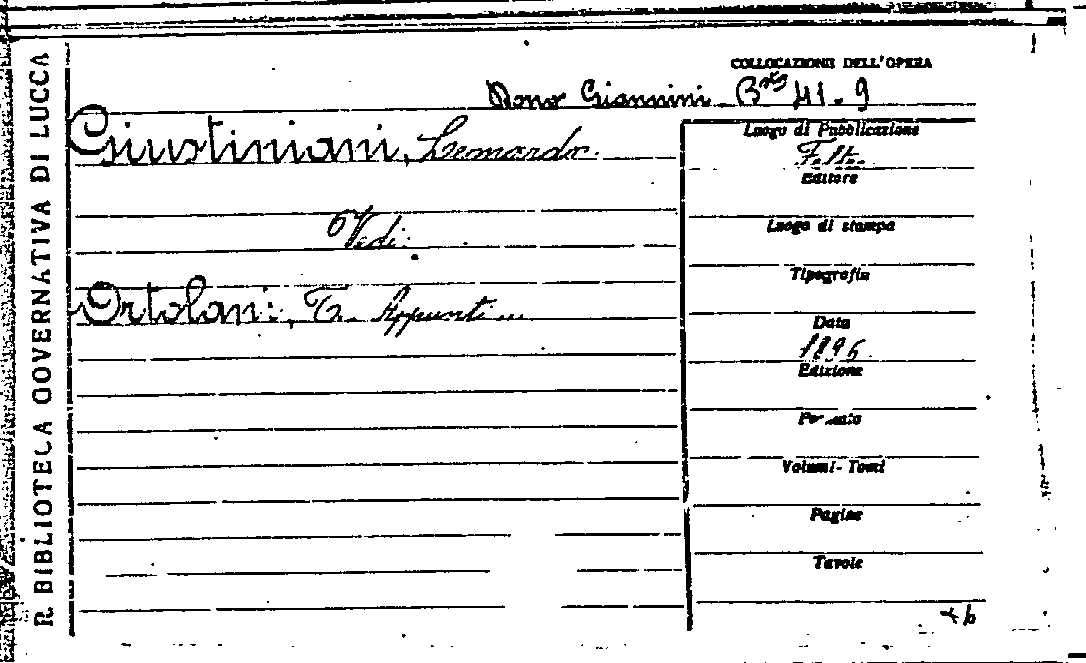 R. BIBLIOTECA GOVERNATIVA DI LUCCA
COLLOCAZIONE DELL'OPERA
Dono Giannini B.ta 41.9
Giustiniani, Leonardo.
Vedi:
Ortolani, T. Appunti...
Luogo di Pubblicazione
Editore
Luogo di stampa
Tipografia
Data
1896
Edizione
Formato
Volumi-Tomi
Pagine
Tavole